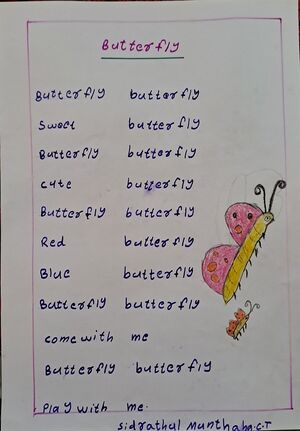 Butterfly
Butterfly butterfly
Sweet butterfly
Butterfly butterfly
cute butterfly
Butterfly butterfly
Red butterfly
Blue butterfly
Butterfly butterfly
come with me
Butterfly butterfly
Play with me.
Sidrathul Munthaha.C.T